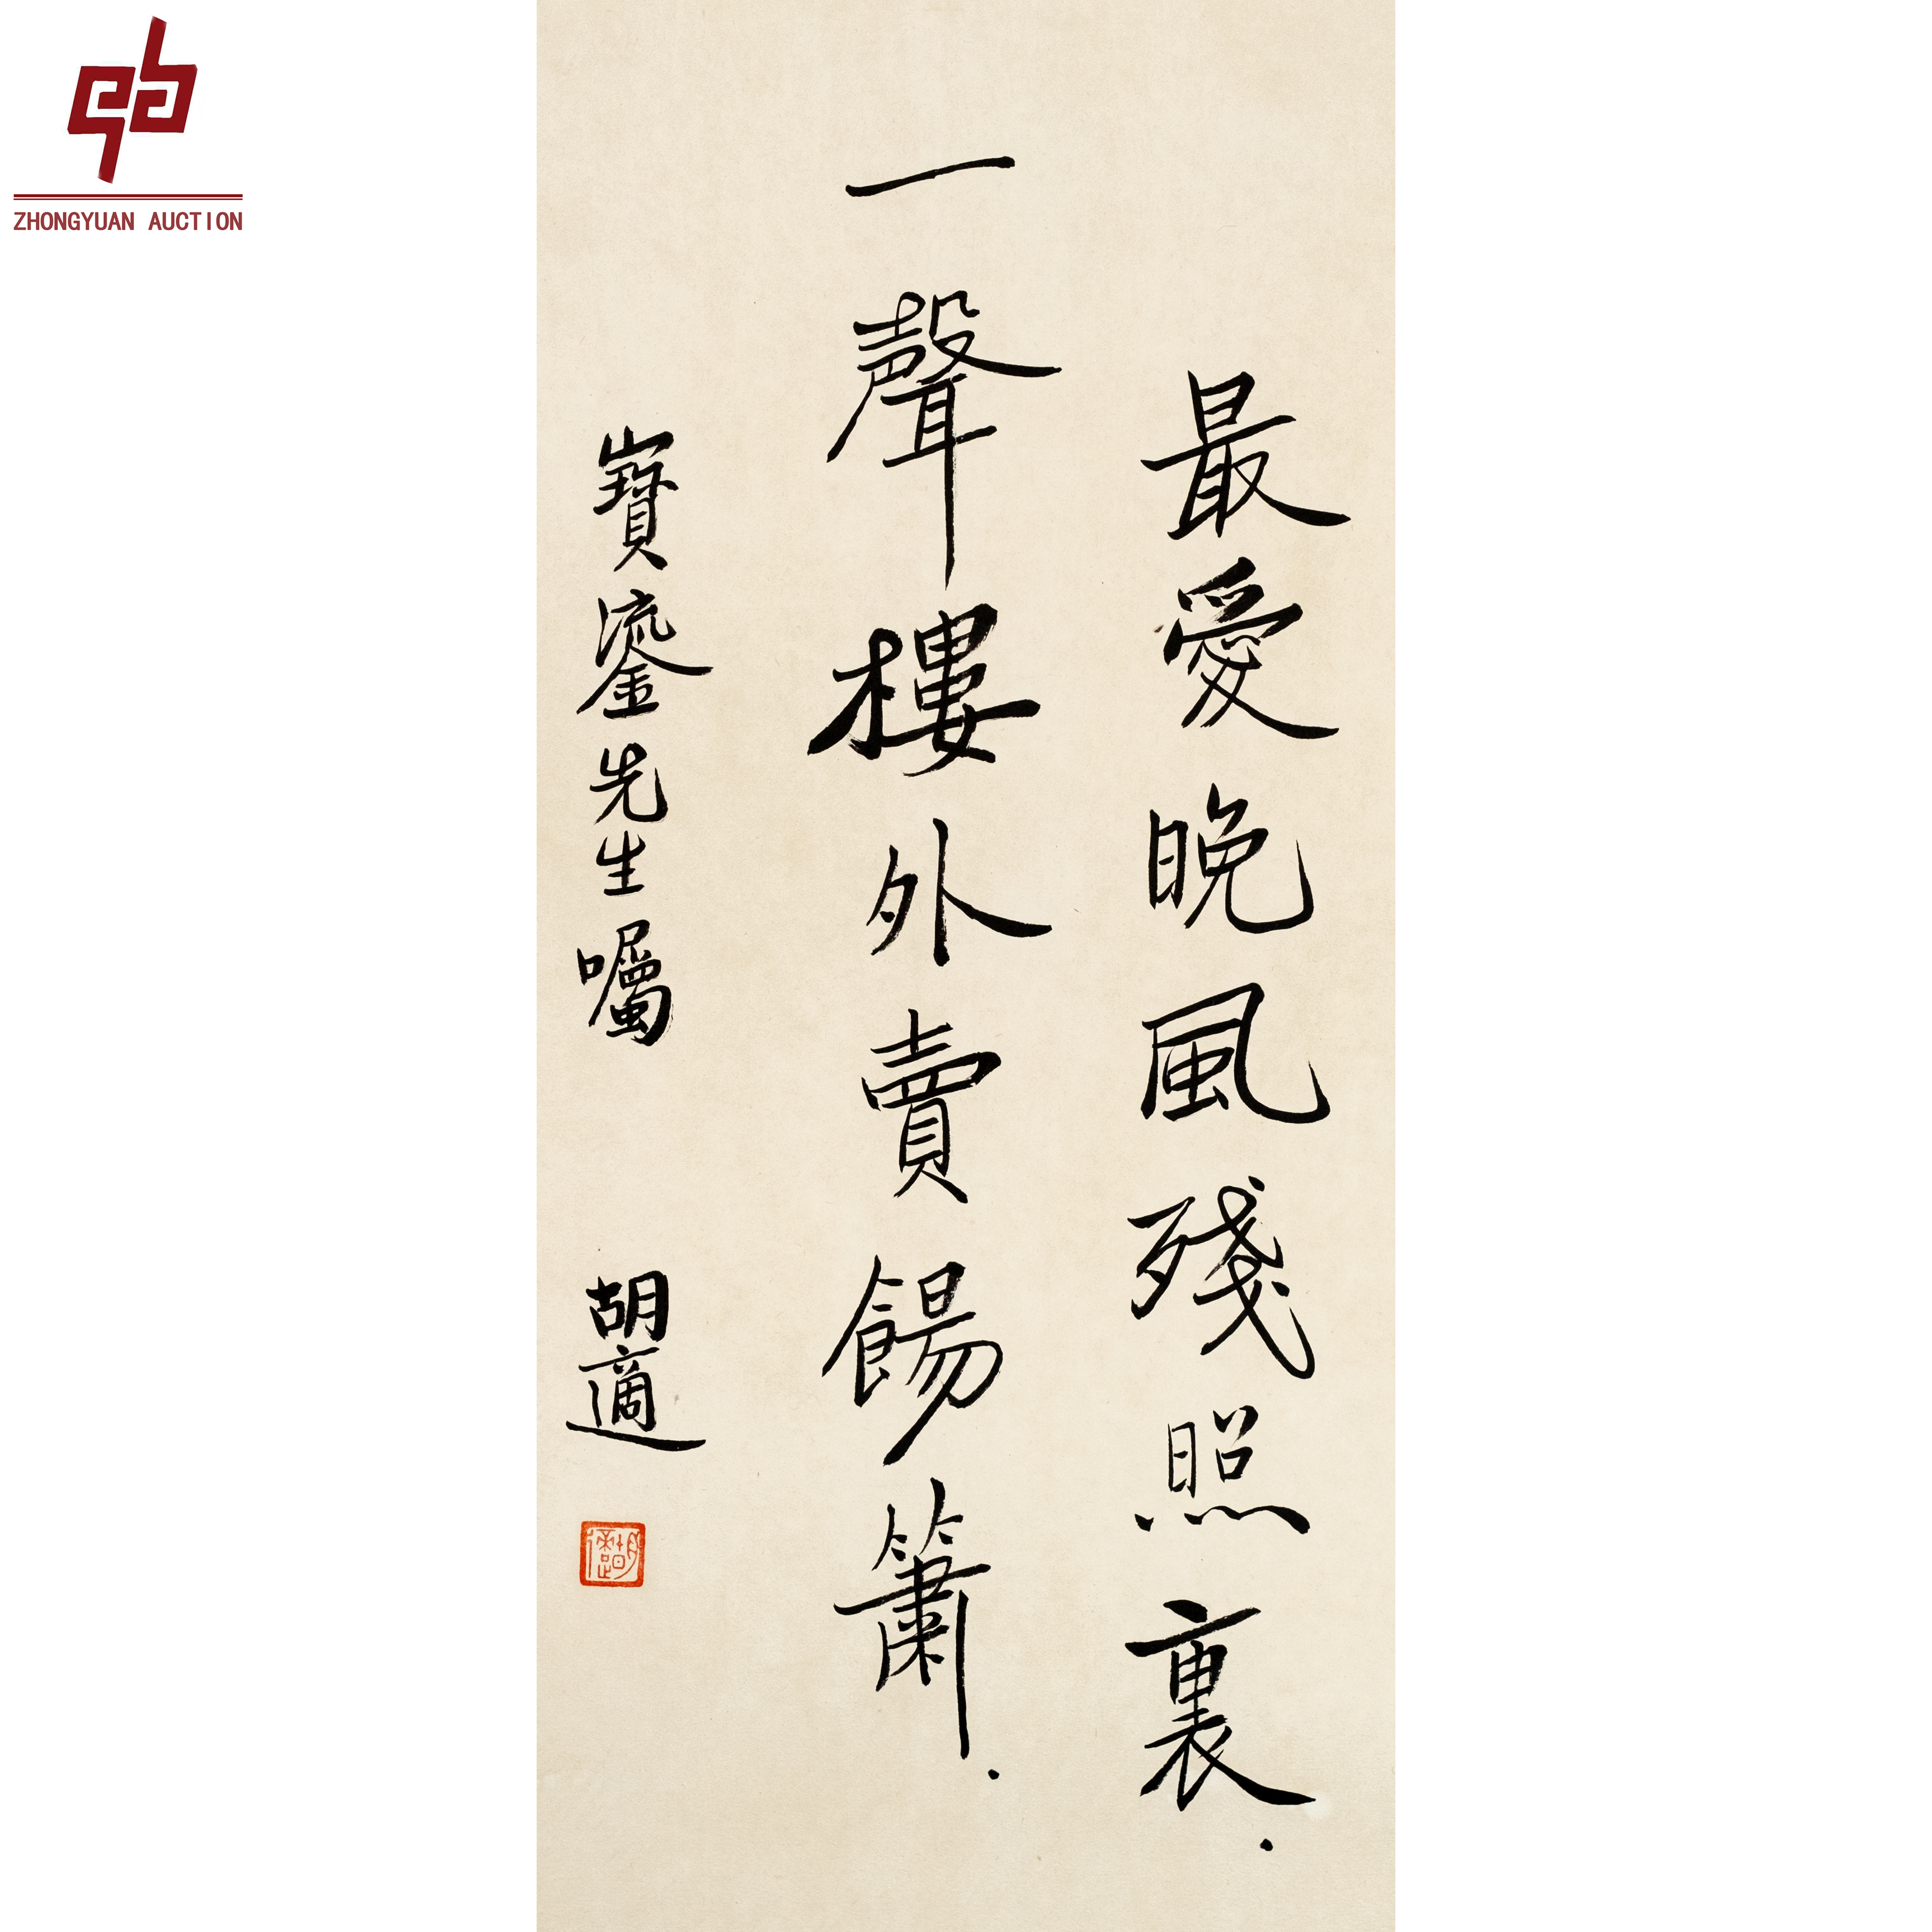 ZHONGYUAN AUCTION
最愛晚風殘照裏.
一聲樓外賣餳簫.
寶鎏先生囑 胡適
胡適